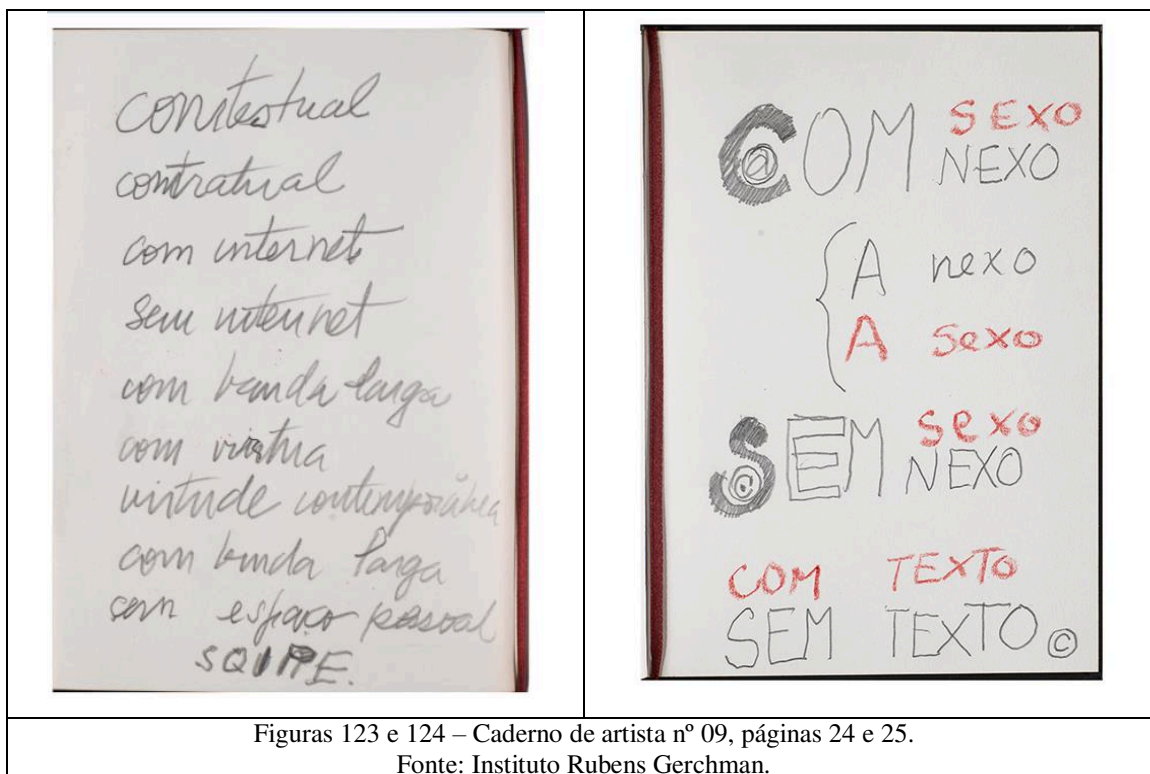 contextual
contratual
com internet
sem internet
com banda larga
com virtua
virtude contemporânea
com banda larga
sem espaço pessoal
SEXO
COM NEXO
A nexo
A sexo
sexo
SEM NEXO
COM TEXTO
SEM TEXTO ©
Figuras 123 e 124 – Caderno de artista nº 09, páginas 24 e 25.
Fonte: Instituto Rubens Gerchman.